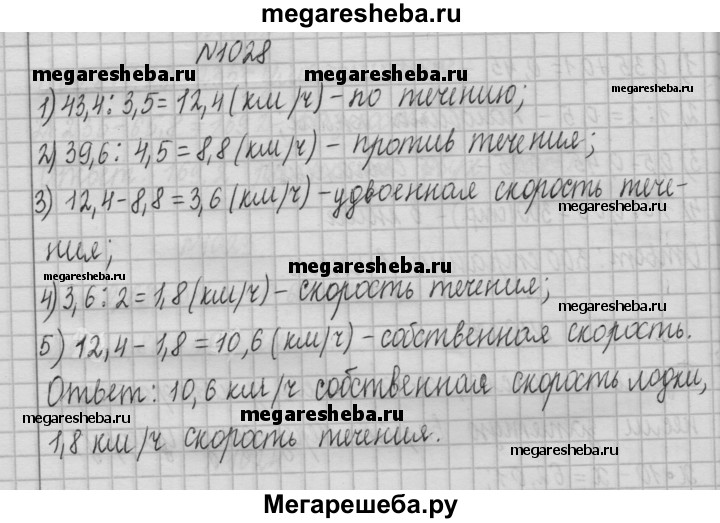 megaresheba.ru
N1028
megaresheba.ru
megaresheba.ru
1) 43,4 : 3,5 = 12,4 (км/ч) - по течению;
2) 39,6 : 4,5 = 8,8 (км/ч) - против течения;
3) 12,4 - 8,8 = 3,6 (км/ч) - удвоенная скорость тече-
megaresheba.ru
megaresheba.ru
ния;
megaresheba.ru
megaresheba.ru
4) 3,6 : 2 = 1,8 (км/ч) - скорость течения;
megaresheba.ru
5) 12,4 - 1,8 = 10,6 (км/ч) - собственная скорость.
Ответ: 10,6 км/ч собственная скорость лодки,
megaresheba.ru
megaresheba.ru
1,8 км/ч скорость течения.
megaresheba.ru
Мегарешеба.ру